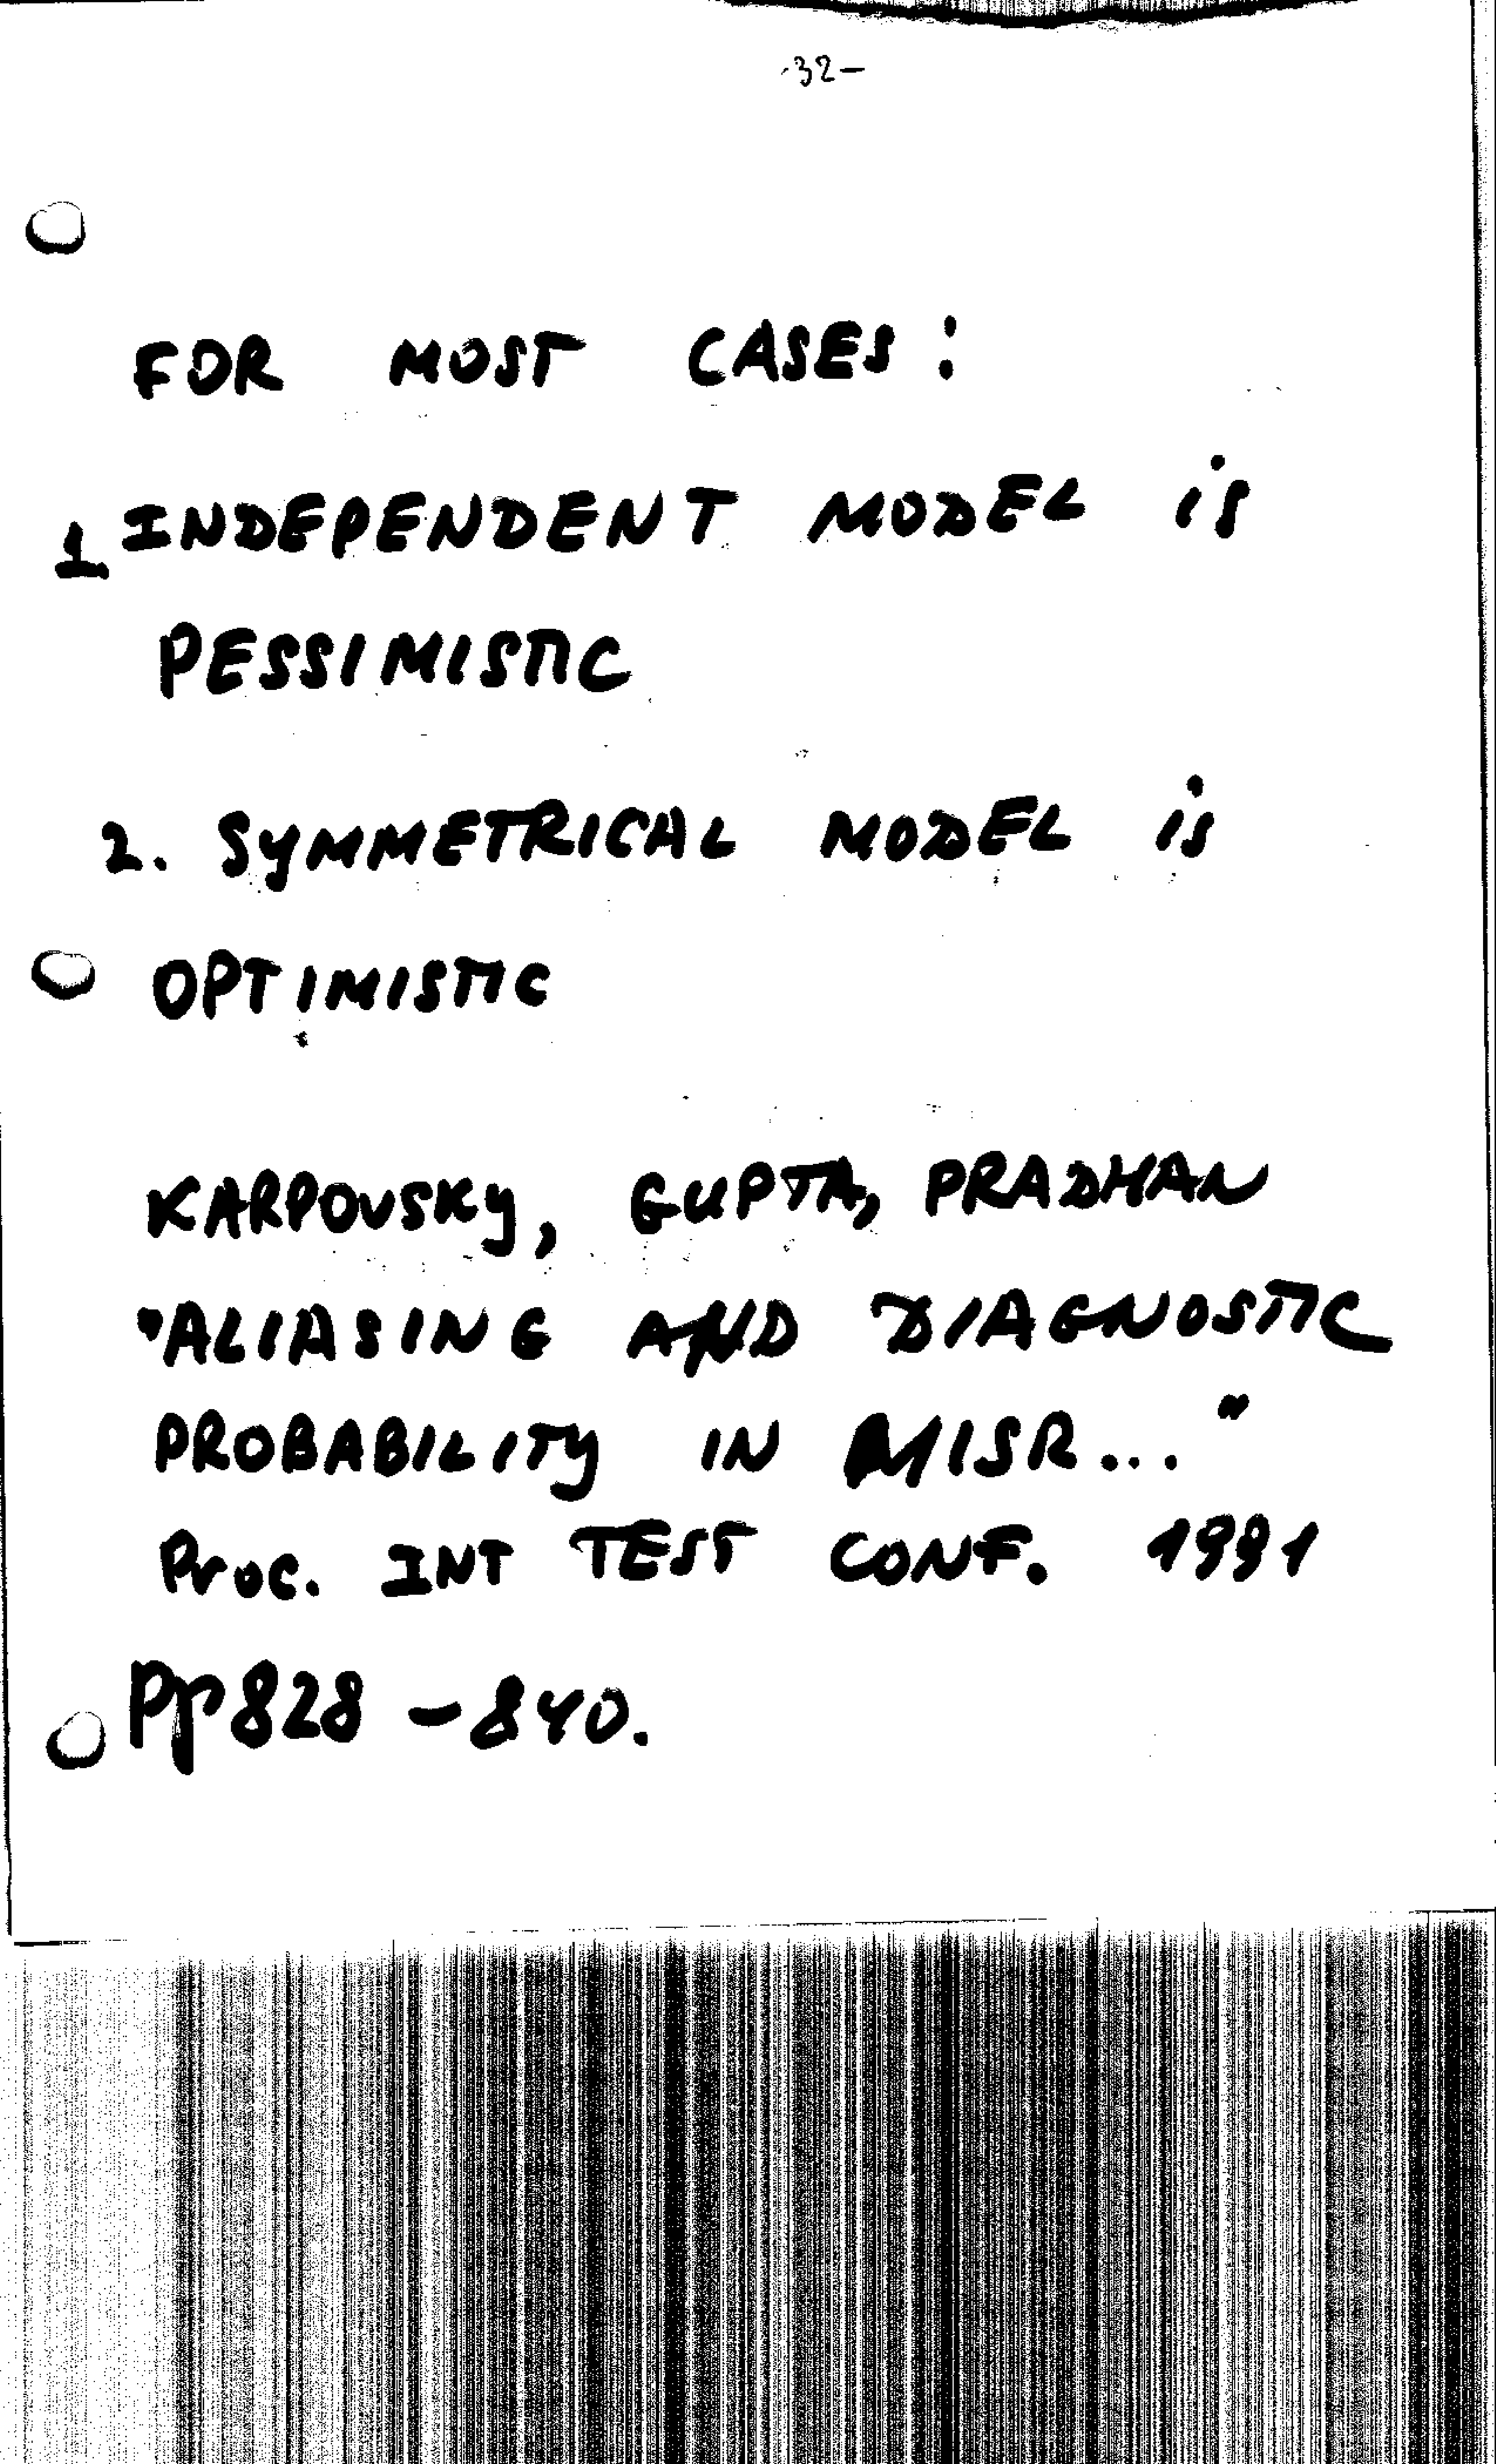 -32-
FOR MOST CASES:
1. INDEPENDENT MODEL is
PESSIMISTIC
2. SYMMETRICAL MODEL is
OPTIMISTIC
KARPOVSKY, GUPTA, PRADHAN
"ALIASING AND DIAGNOSTIC
PROBABILITY IN MISR..."
Proc. INT TEST CONF. 1991
Pp828-840.